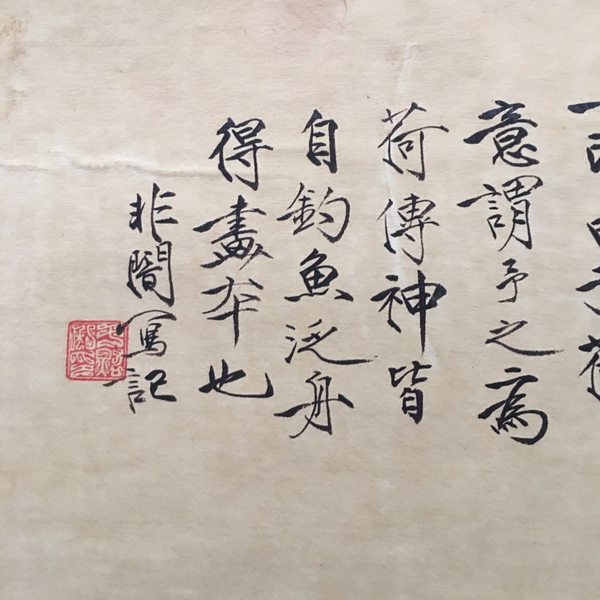 意謂予之為
荷傳神皆
自釣魚泛舟
得畫本也
非闇寫記